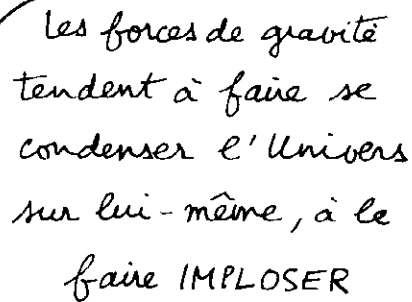 Les forces de gravité
tendent à faire se
condenser l'Univers
sur lui-même, à le
faire IMPLOSER